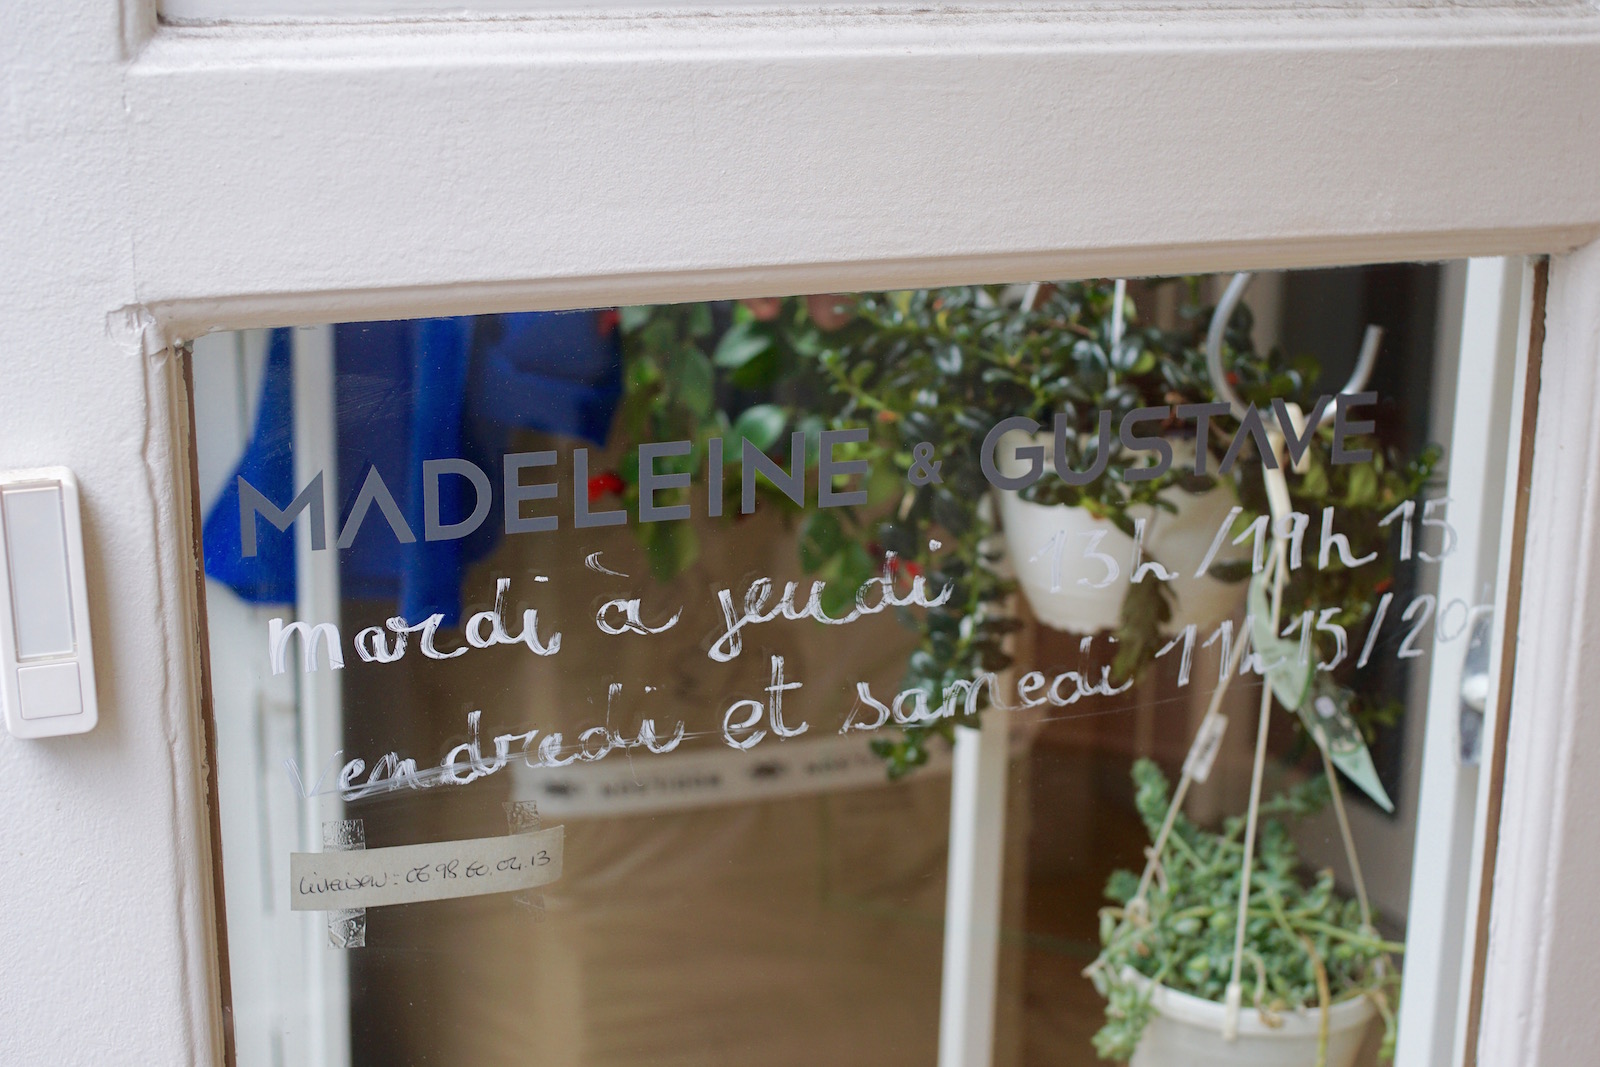 MADELEINE & GUSTAVE
mardi à jeudi 13h/19h15
vendredi et samedi 11h15/20h
livraison: 06 98 60.04.13